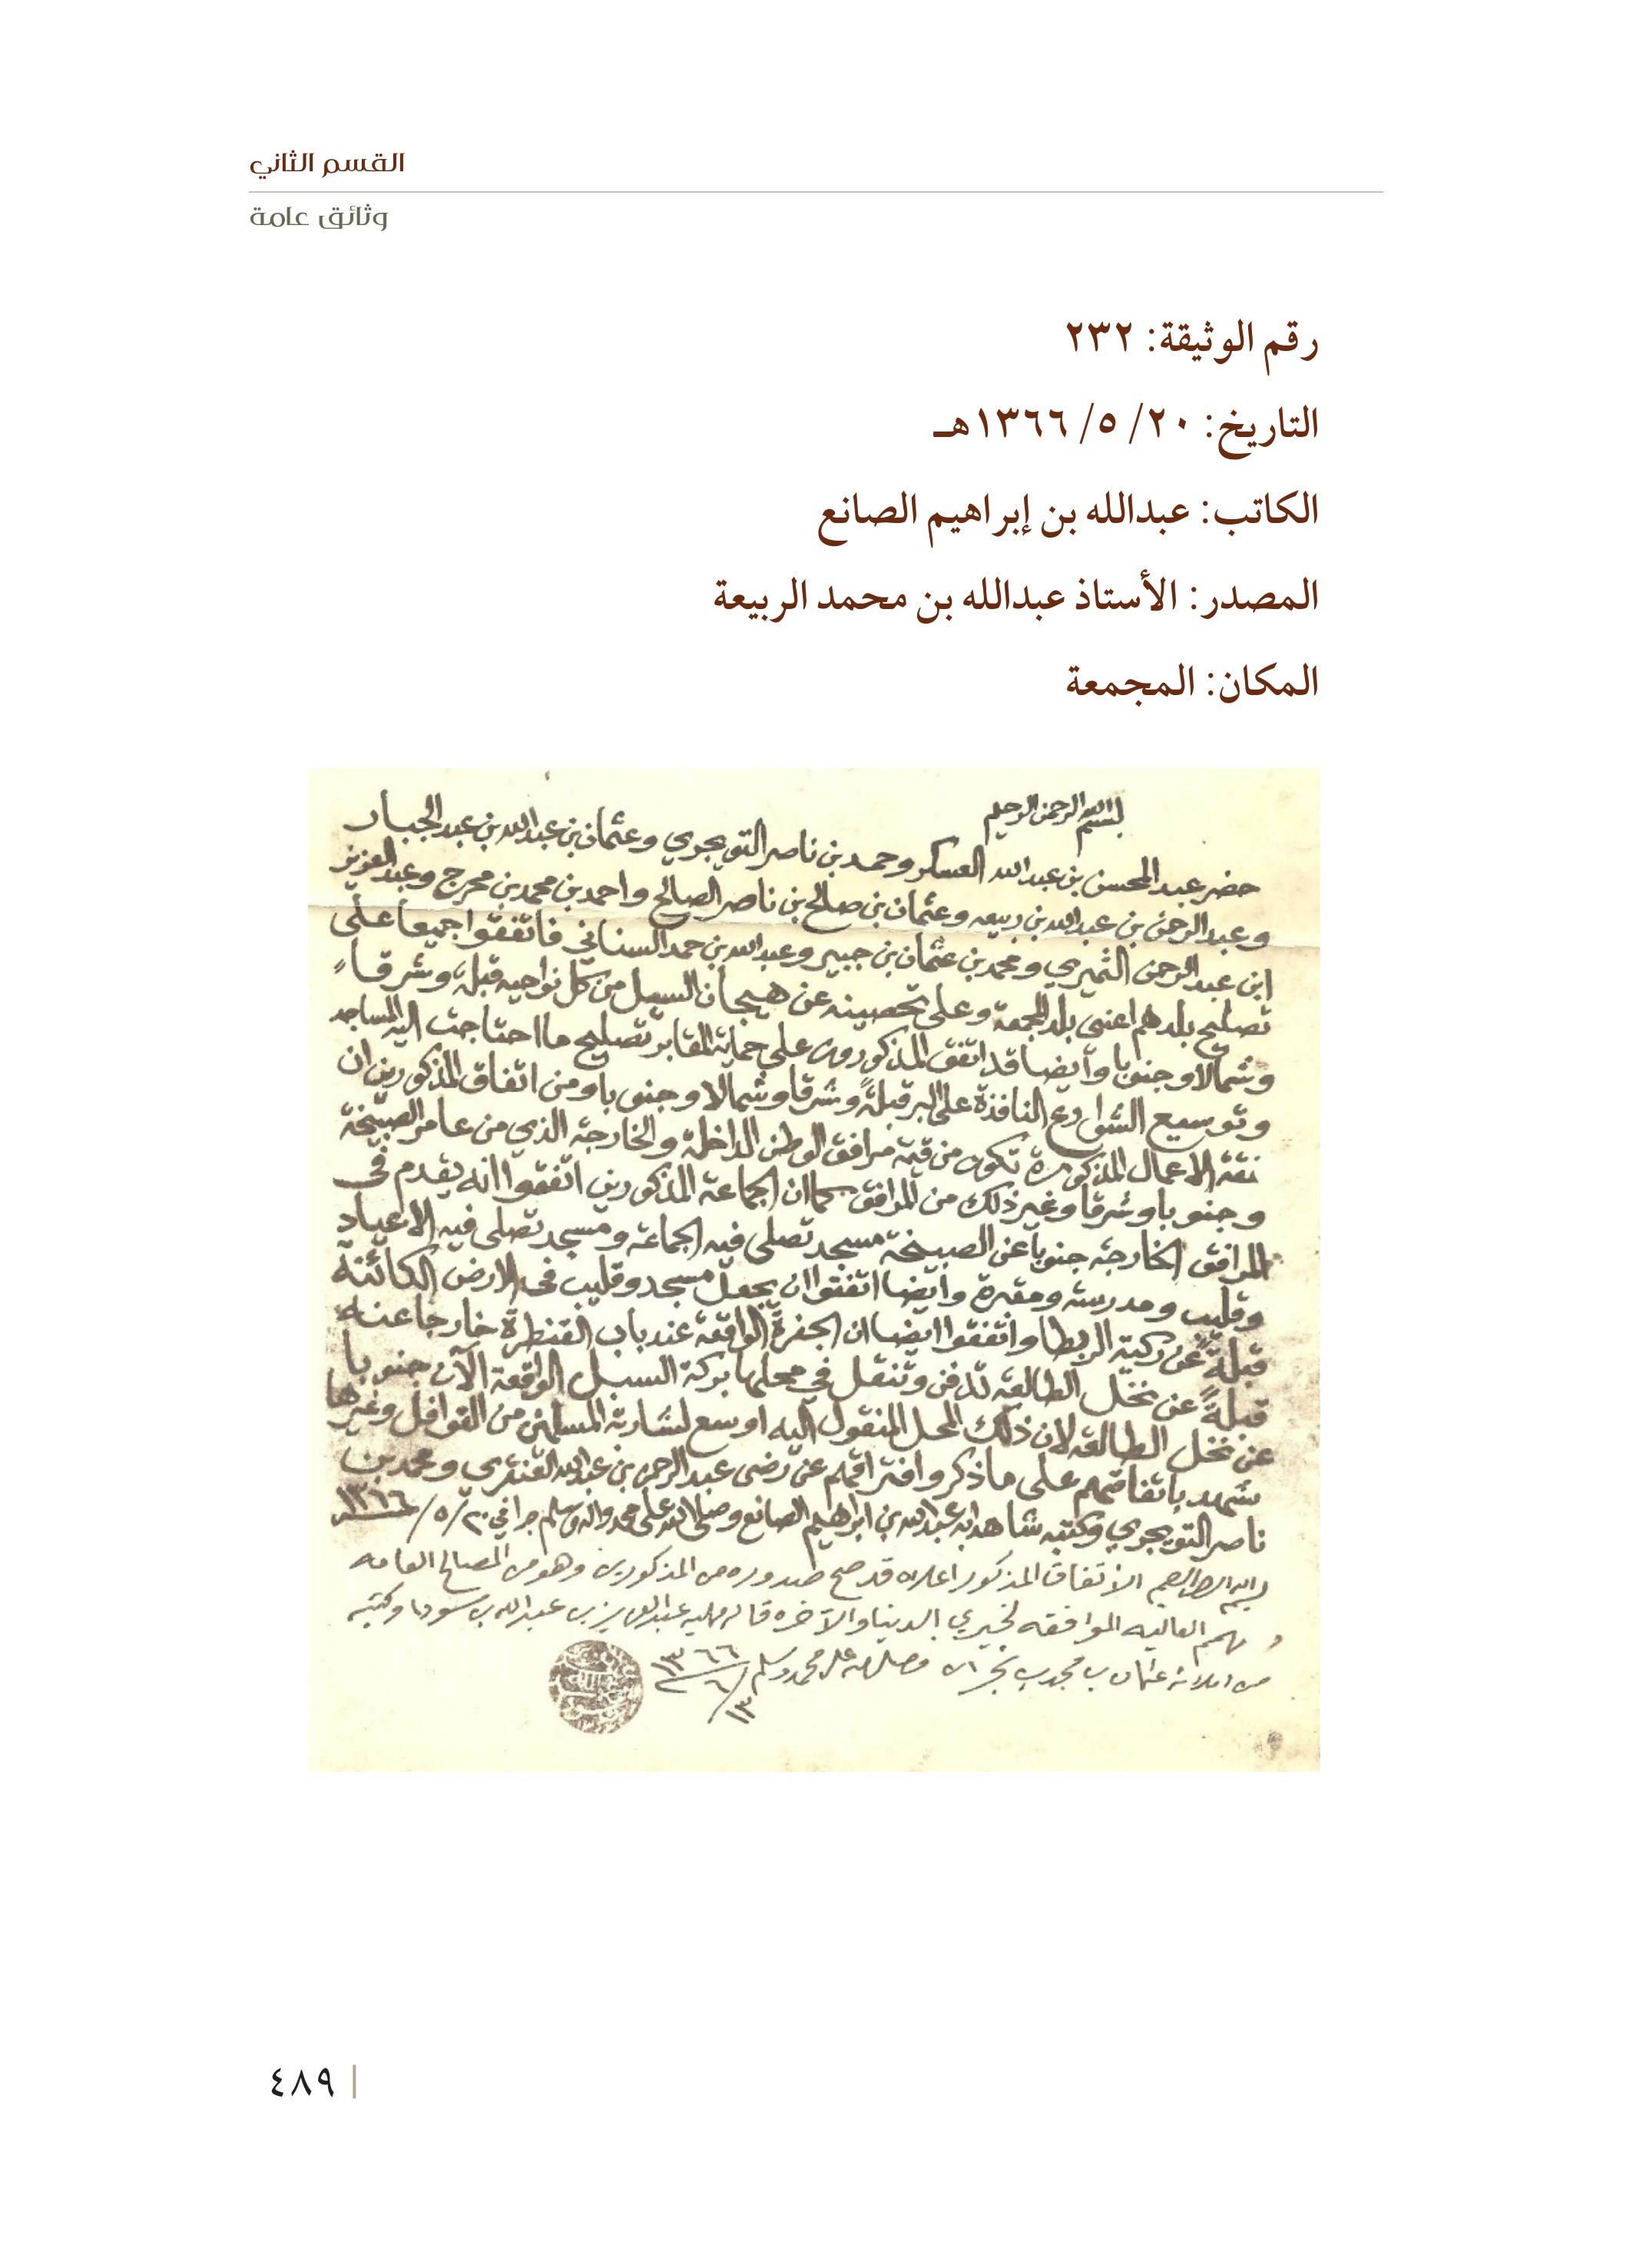 القسم الثاني
وثائق عامة
رقم الوثيقة: ٢٣٢
التاريخ: ٢٠/ ٥/ ١٣٦٦هـ
الكاتب: عبدالله بن إبراهيم الصانع
المصدر: الأستاذ عبدالله بن محمد الربيعة
المكان: المجمعة
بسم الله الرحمن الرحيم
حضر عبد المحسن بن عبد الله العسكر وحمد بن ناصر التويجري وعثمان بن عبد الله بن عبد الجبار
وعبد الرحمن بن عبد الله بن ربيعه وعثمان بن صالح بن ناصر الصالح واحمد بن محمد بن محرج وعبد العزيز
ابن عبد الرحمن الثميري ومحمد بن عثمان بن جبير وعبد الله بن حمد السناني فاتفقوا جميعاً على
تصليح بلدهم اعني بلد المجمعة وعلى تحصينه عن هيجان السيل من كل نواحيه قبلة وشرقاً
وشمالا وجنوبا وأيضا قد اتفق المذكورون على حماية المقابر وتصليح ما احتاجت اليه المساجد
وتوسيع الشوارع النافذة على البر قبلةً وشرقا وشمالا وجنوبا ومن اتفاق المذكورين ان
نفقة الاعمال المذكورة تكون من قيمة مرافق الوطن الداخلة والخارجة الذي من عامر الصبيخة
وجنوبا وشرقا وغير ذلك من المرافق كما ان الجماعة المذكورين اتفقوا انه يقدم في
المرافق الخارجة جنوبا عن الصبيخة مسجد تصلى فيه الجماعة ومسجد تصلى فيه الاعياد
وقليب ومدرسة ومقبرة وايضا اتفقوا ان يجعل مسجد وقليب في الارض الكائنة
قبلةً عن ركية الربطا واتفقوا ايضا ان الحفرة الواقعة عند باب القنطرة خارجا عنه
قبلةً عن نخل الطالعة تدفن وتنقل في محلها بركة السبل الواقعة الآن جنوبا
عن نخل الطالعة لان ذلك المحل المنقول اليه اوسع لشاربة المسلمين من القوافل وغيرها
شهد باتفاقهم على ما ذكر وافتراقهم عن رضى عبد الرحمن بن عبد الله العنقري ومحمد بن
ناصر التويجري وكتبه شاهدا به عبد الله بن ابراهيم الصانع وصلى الله على محمد وآله وسلم حرر في ٢٠/٥/١٣٦٦
بسم الله الرحمن الرحيم الاتفاق المذكور اعلاه قد صح صدوره من المذكورين وهو من المصالح العامه
العاليه الموافقه لخيري الدنيا والآخره قاله ممليه عبد العزيز بن عبد الله بن وكتبه
من املائه عثمان بن وصلى الله على محمد وسلم ١٣/٦/١٣٦٦
٤٨٩